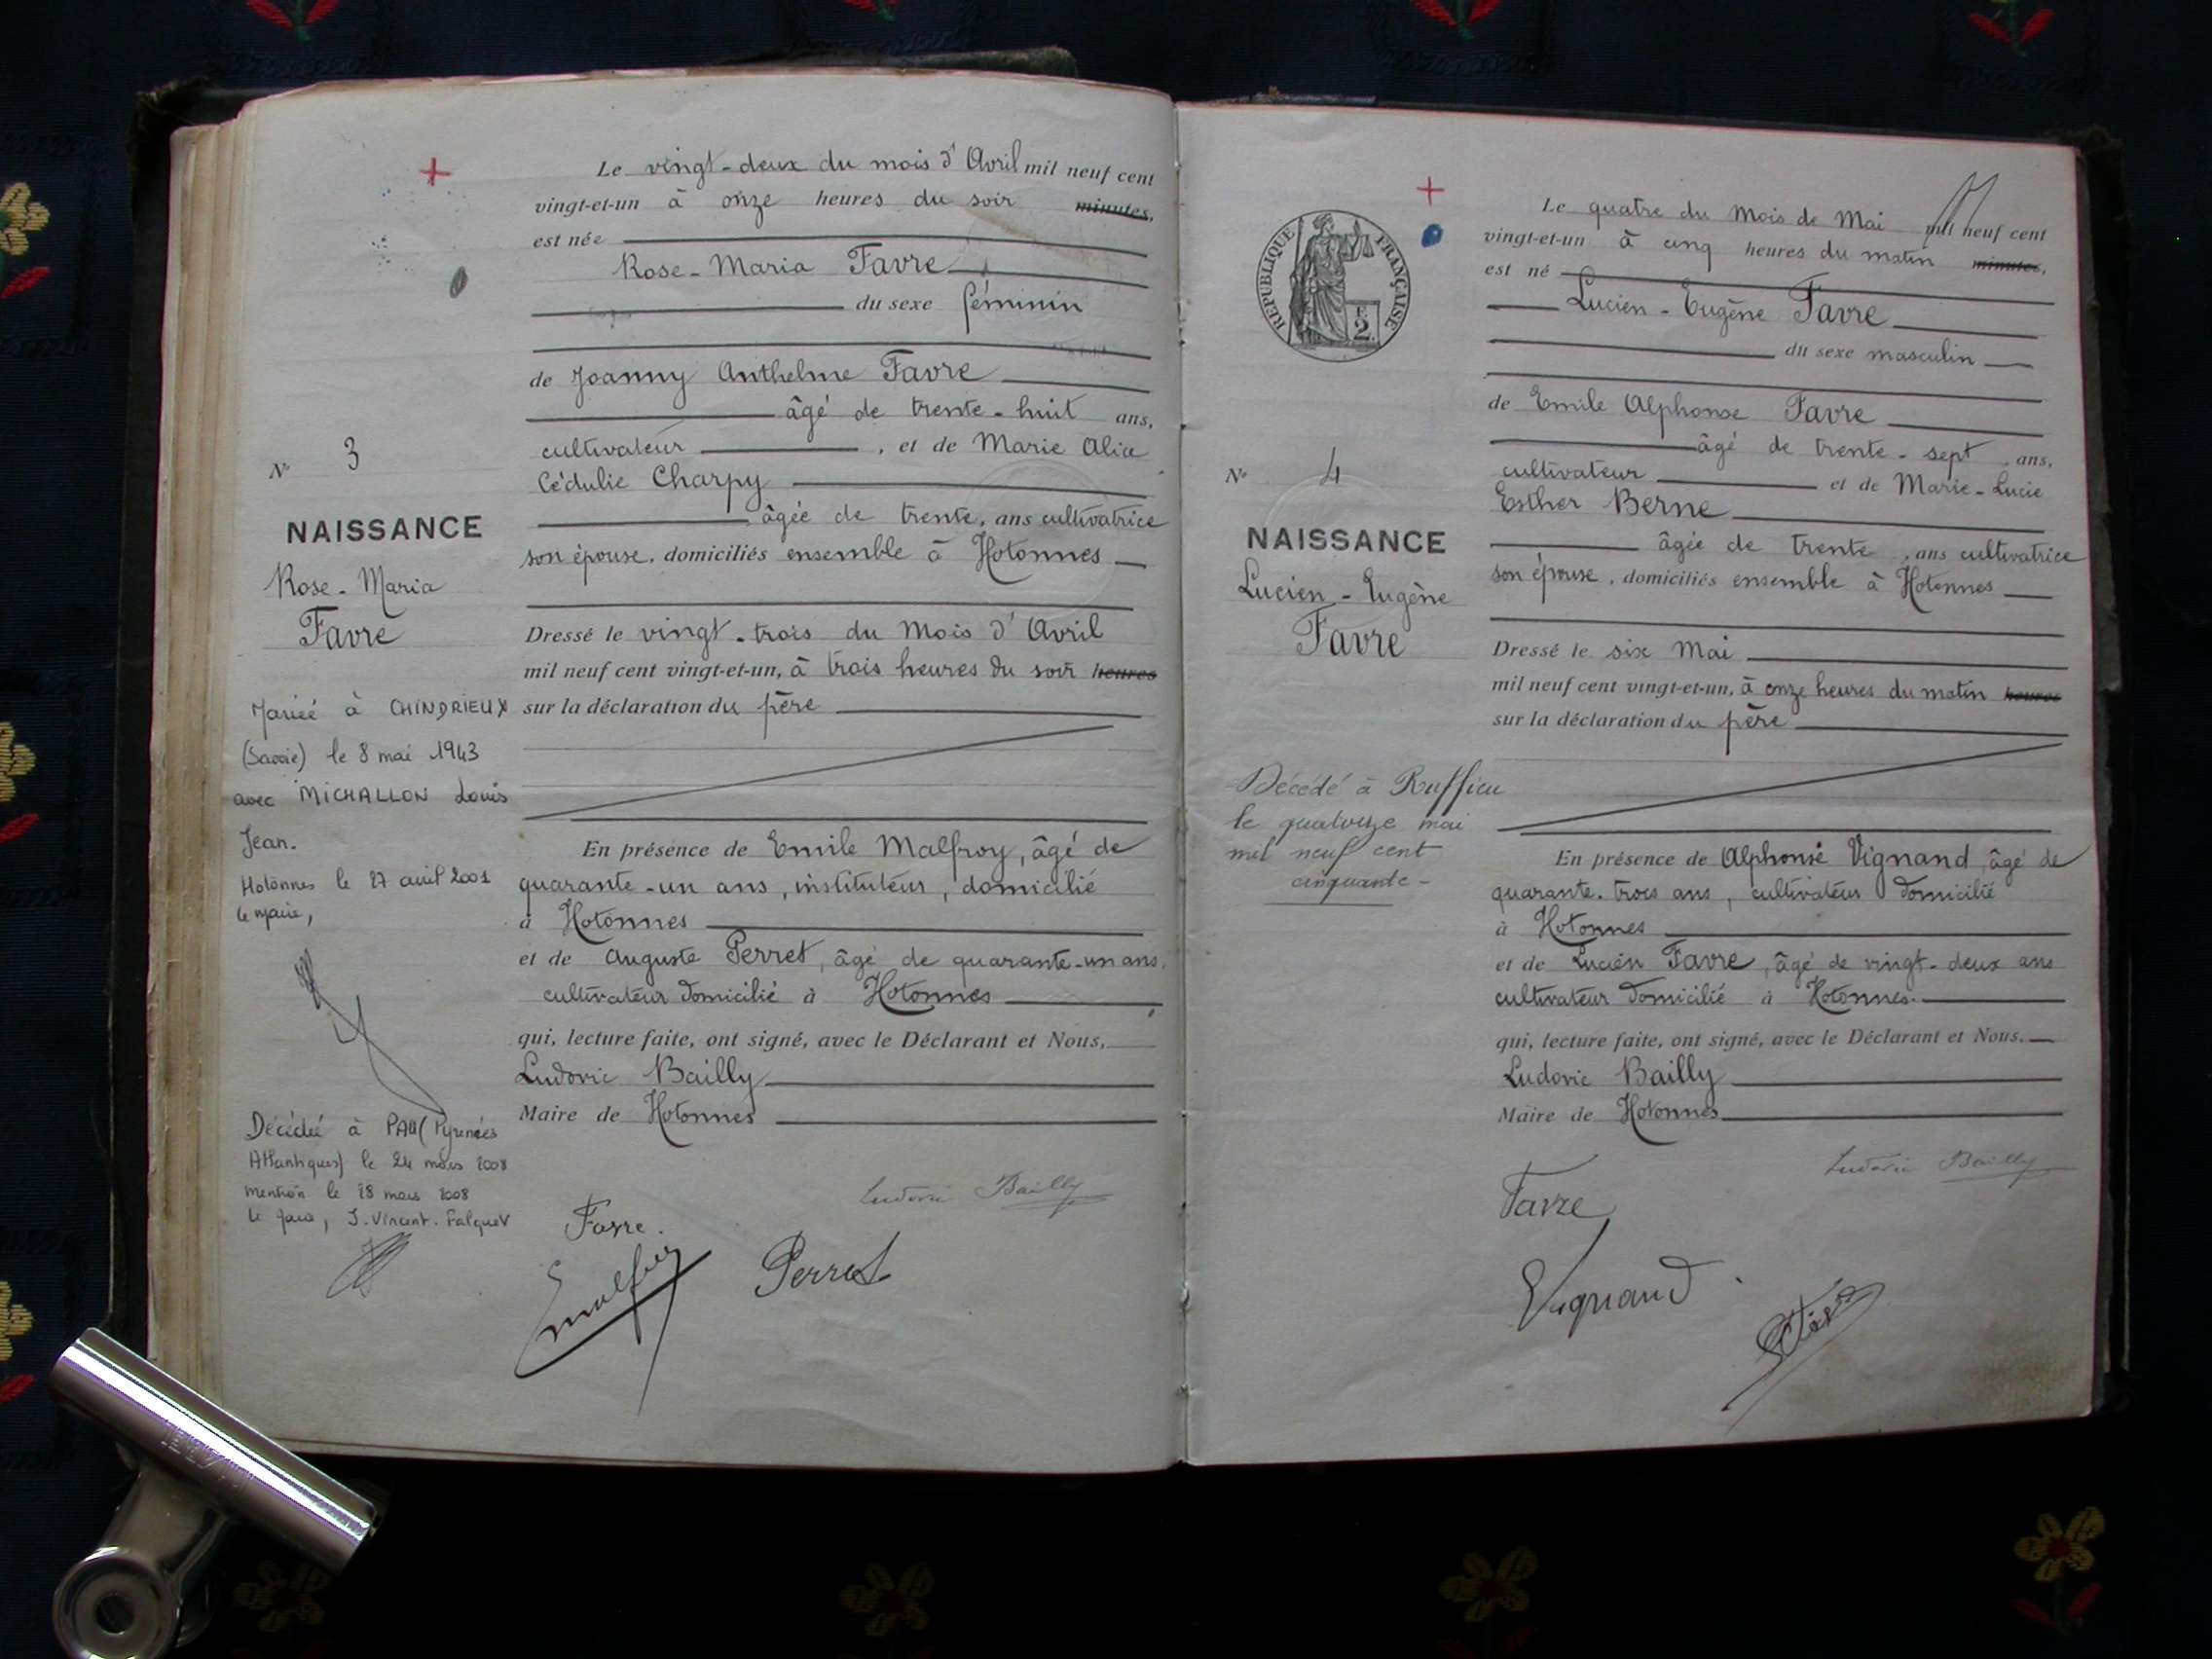 Le vingt-deux du mois d'Avril mil neuf cent
vingt-et-un à onze heures du soir minutes,
est née
Rose-Maria Favre
du sexe féminin
de Joanny Anthelme Favre
âgé de trente-huit ans,
cultivateur, et de Marie Alia
Cédulie Charpy
âgée de trente, ans cultivatrice
son épouse, domiciliés ensemble à Hotonnes
Dressé le vingt-trois du Mois d'Avril
mil neuf cent vingt-et-un, à trois heures du soir heures
sur la déclaration du père
En présence de Emile Malfroy, âgé de
quarante-un ans, instituteur, domicilié
à Hotonnes
et de Auguste Perret, âgé de quarante-un ans,
cultivateur domicilié à Hotonnes
qui, lecture faite, ont signé, avec le Déclarant et Nous,
Ludovic Bailly
Maire de Hotonnes
Ludovic Bailly
Favre.
Malfroy
Perret
N° 3
NAISSANCE
Rose-Maria
Favre
Mariée à CHINDRIEUX
(Savoie) le 8 mai 1943
avec MICHALLON Louis
Jean.
Hotonnes le 27 avril 2001
le Maire,
Décédée à PAU (Pyrénées
Atlantiques) le 24 mars 2008
mention le 28 mars 2008
Le Maire, J. Vincent. Falquet
RÉPUBLIQUE FRANÇAISE
F.
2.
Le quatre du Mois de Mai mil neuf cent
vingt-et-un à cinq heures du matin minutes,
est né
Lucien-Eugène Favre
du sexe masculin
de Emile Alphonse Favre
âgé de trente-sept, ans,
cultivateur et de Marie-Lucie
Esther Berne
âgée de trente, ans cultivatrice
son épouse, domiciliés ensemble à Hotonnes
Dressé le six Mai
mil neuf cent vingt-et-un, à onze heures du matin heures
sur la déclaration du père
En présence de Alphonse Vignand, âgé de
quarante-trois ans, cultivateur domicilié
à Hotonnes
et de Lucien Favre, âgé de vingt-deux ans
cultivateur domicilié à Hotonnes.
qui, lecture faite, ont signé, avec le Déclarant et Nous.
Ludovic Bailly
Maire de Hotonnes
Ludovic Bailly
Favre
Vignand
N° 4
NAISSANCE
Lucien-Eugène
Favre
Décédé à Ruffieu
le quatorze mai
mil neuf cent
cinquante-